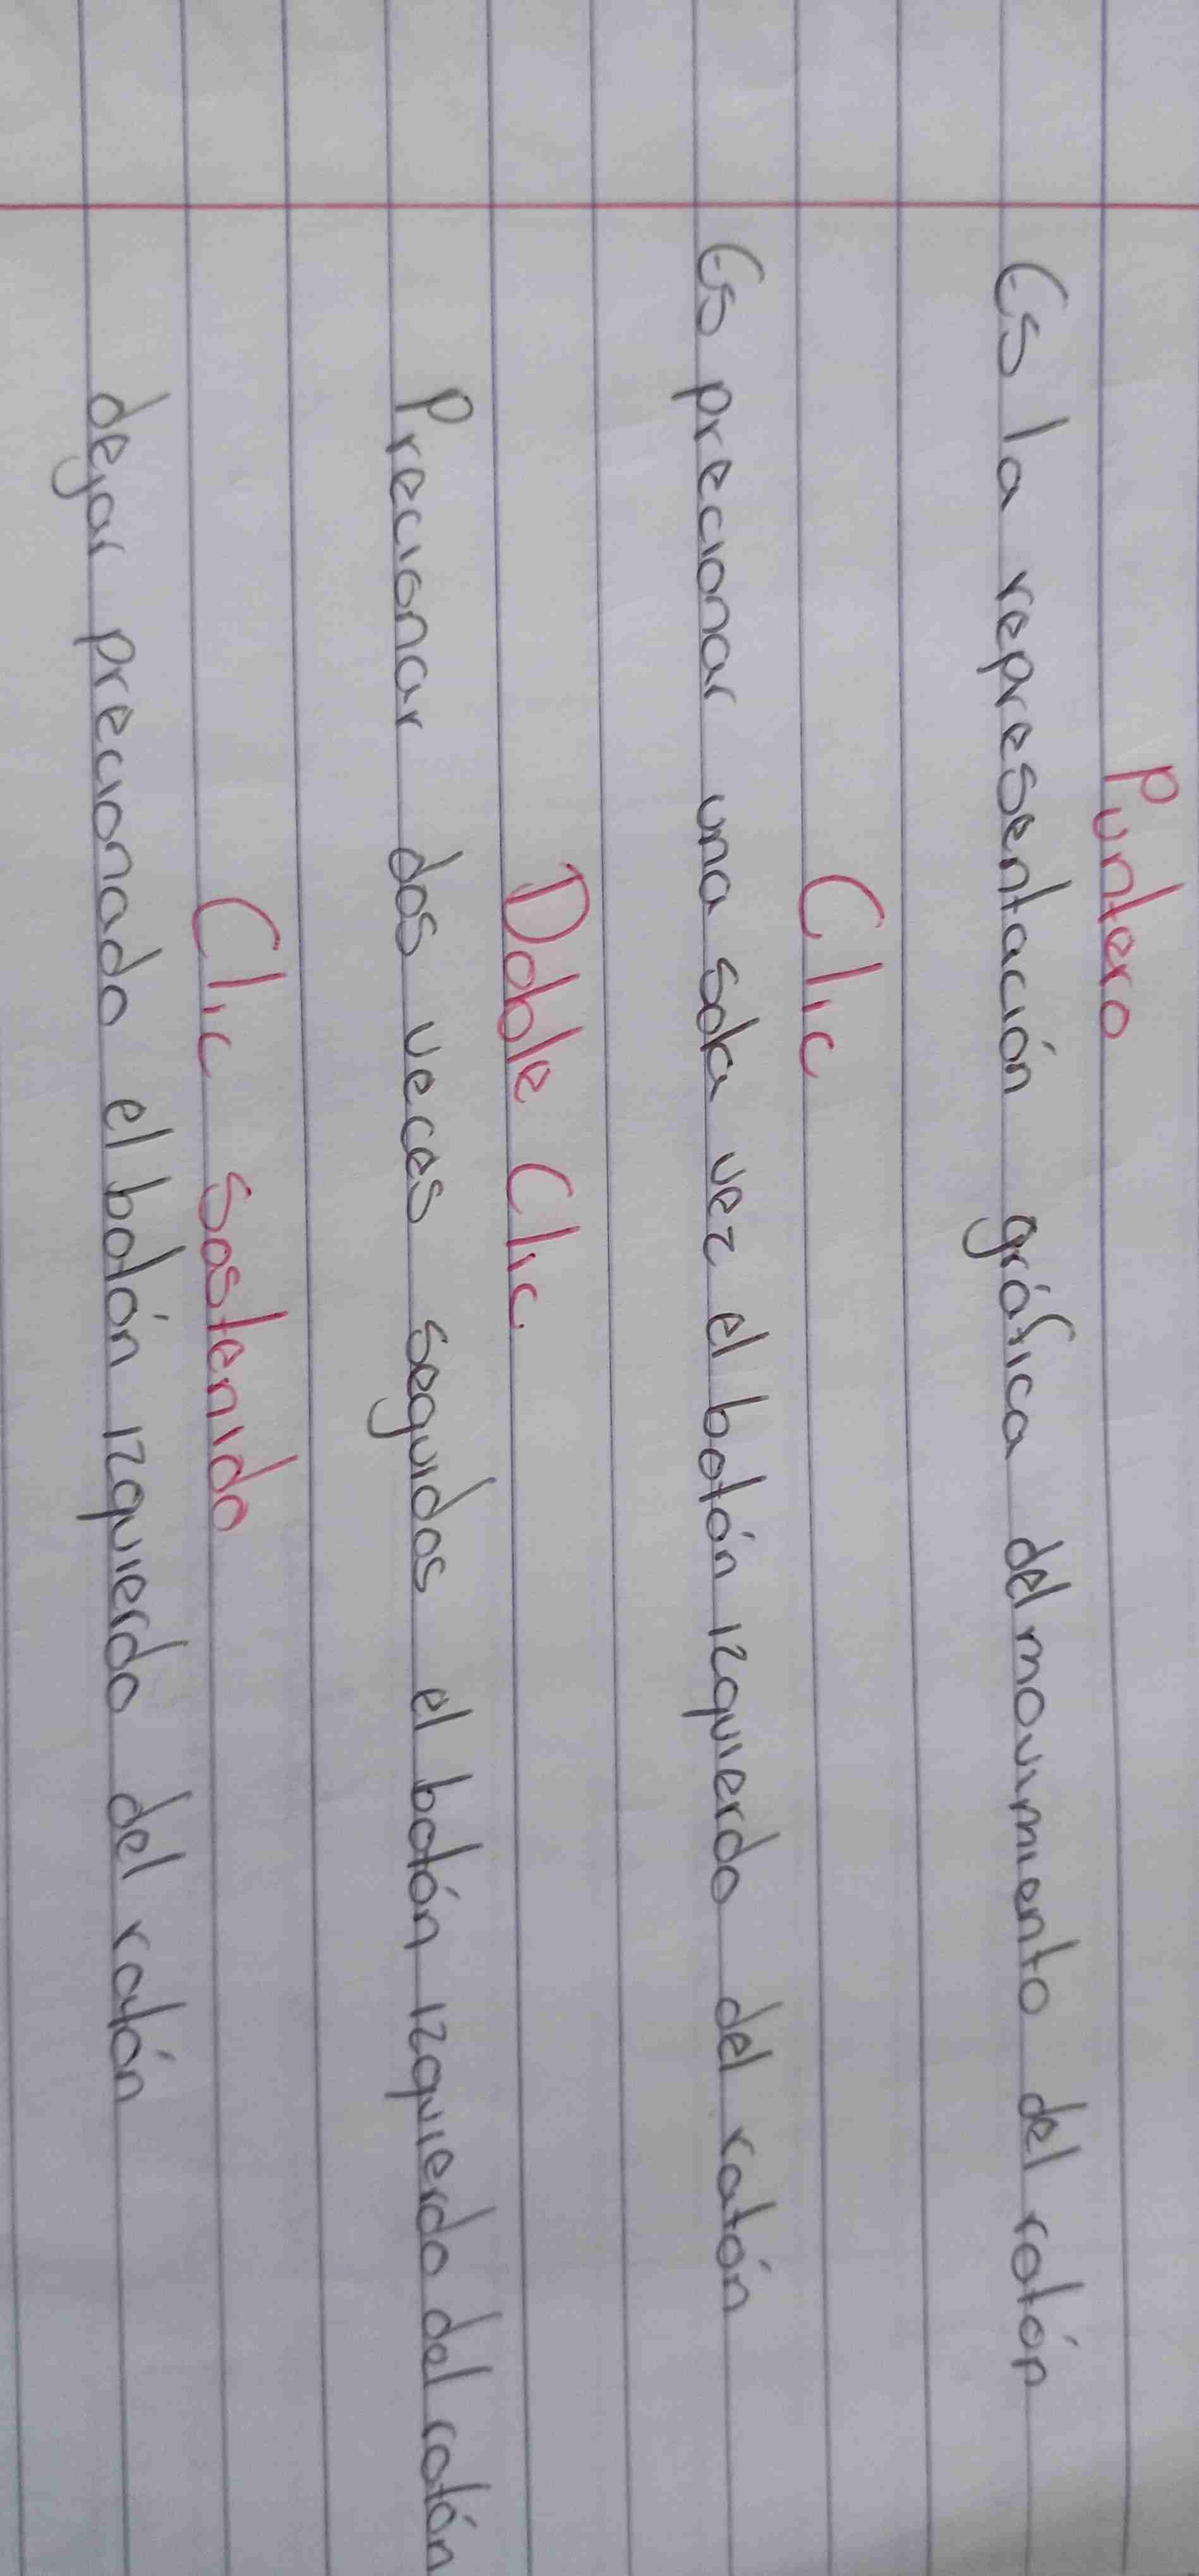 Puntero
Es la representación gráfica del movimiento del ratón
Clic
Es precionar una sola vez el botón izquierdo del ratón
Doble Clic
Precionar dos veces seguidos el botón izquierdo del ratón
Clic sostenido
dejar precionado el botón izquierdo del ratón